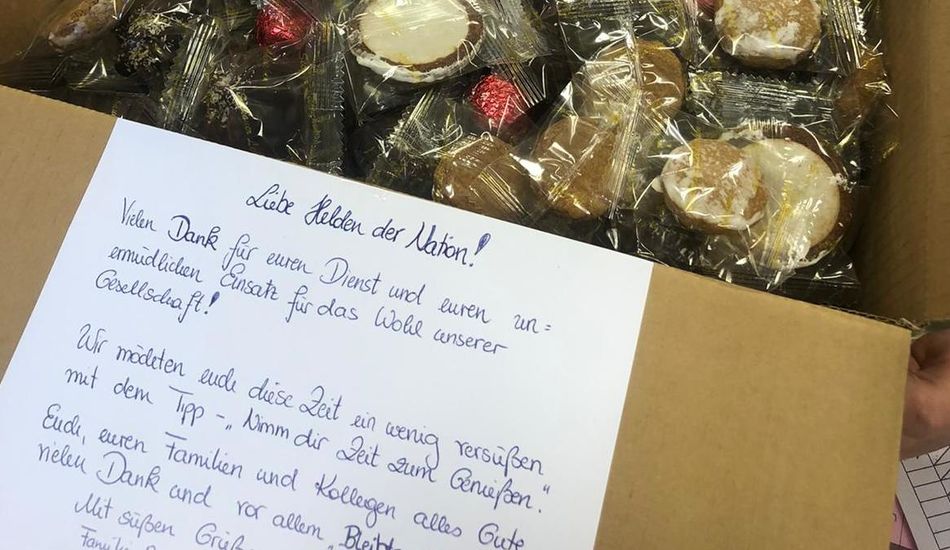 Liebe Helden der Nation!
Vielen Dank für euren Dienst und euren un=
ermüdlichen Einsatz für das Wohl unserer
Gesellschaft!
Wir möchten euch diese Zeit ein wenig versüßen
mit dem Tipp - „Nimm dir Zeit zum Genießen."
Euch, euren Familien und Kollegen alles Gute
vielen Dank und vor allem „Bleibt
Mit süßen
Familie